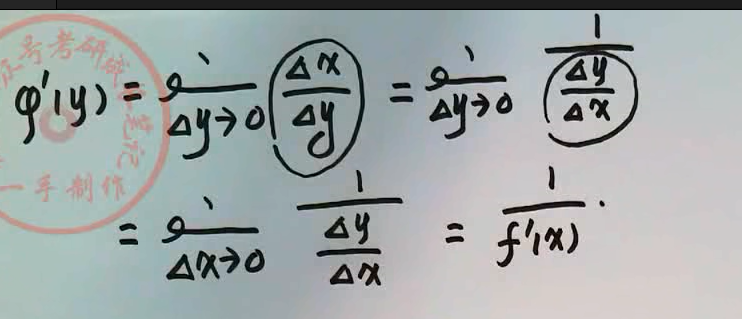 φ'(y) = lim Δy→0 Δx/Δy = lim Δy→0 1/(Δy/Δx)
= lim Δx→0 1/(Δy/Δx) = 1/f'(x).
众号考研成
笔记
一手制作